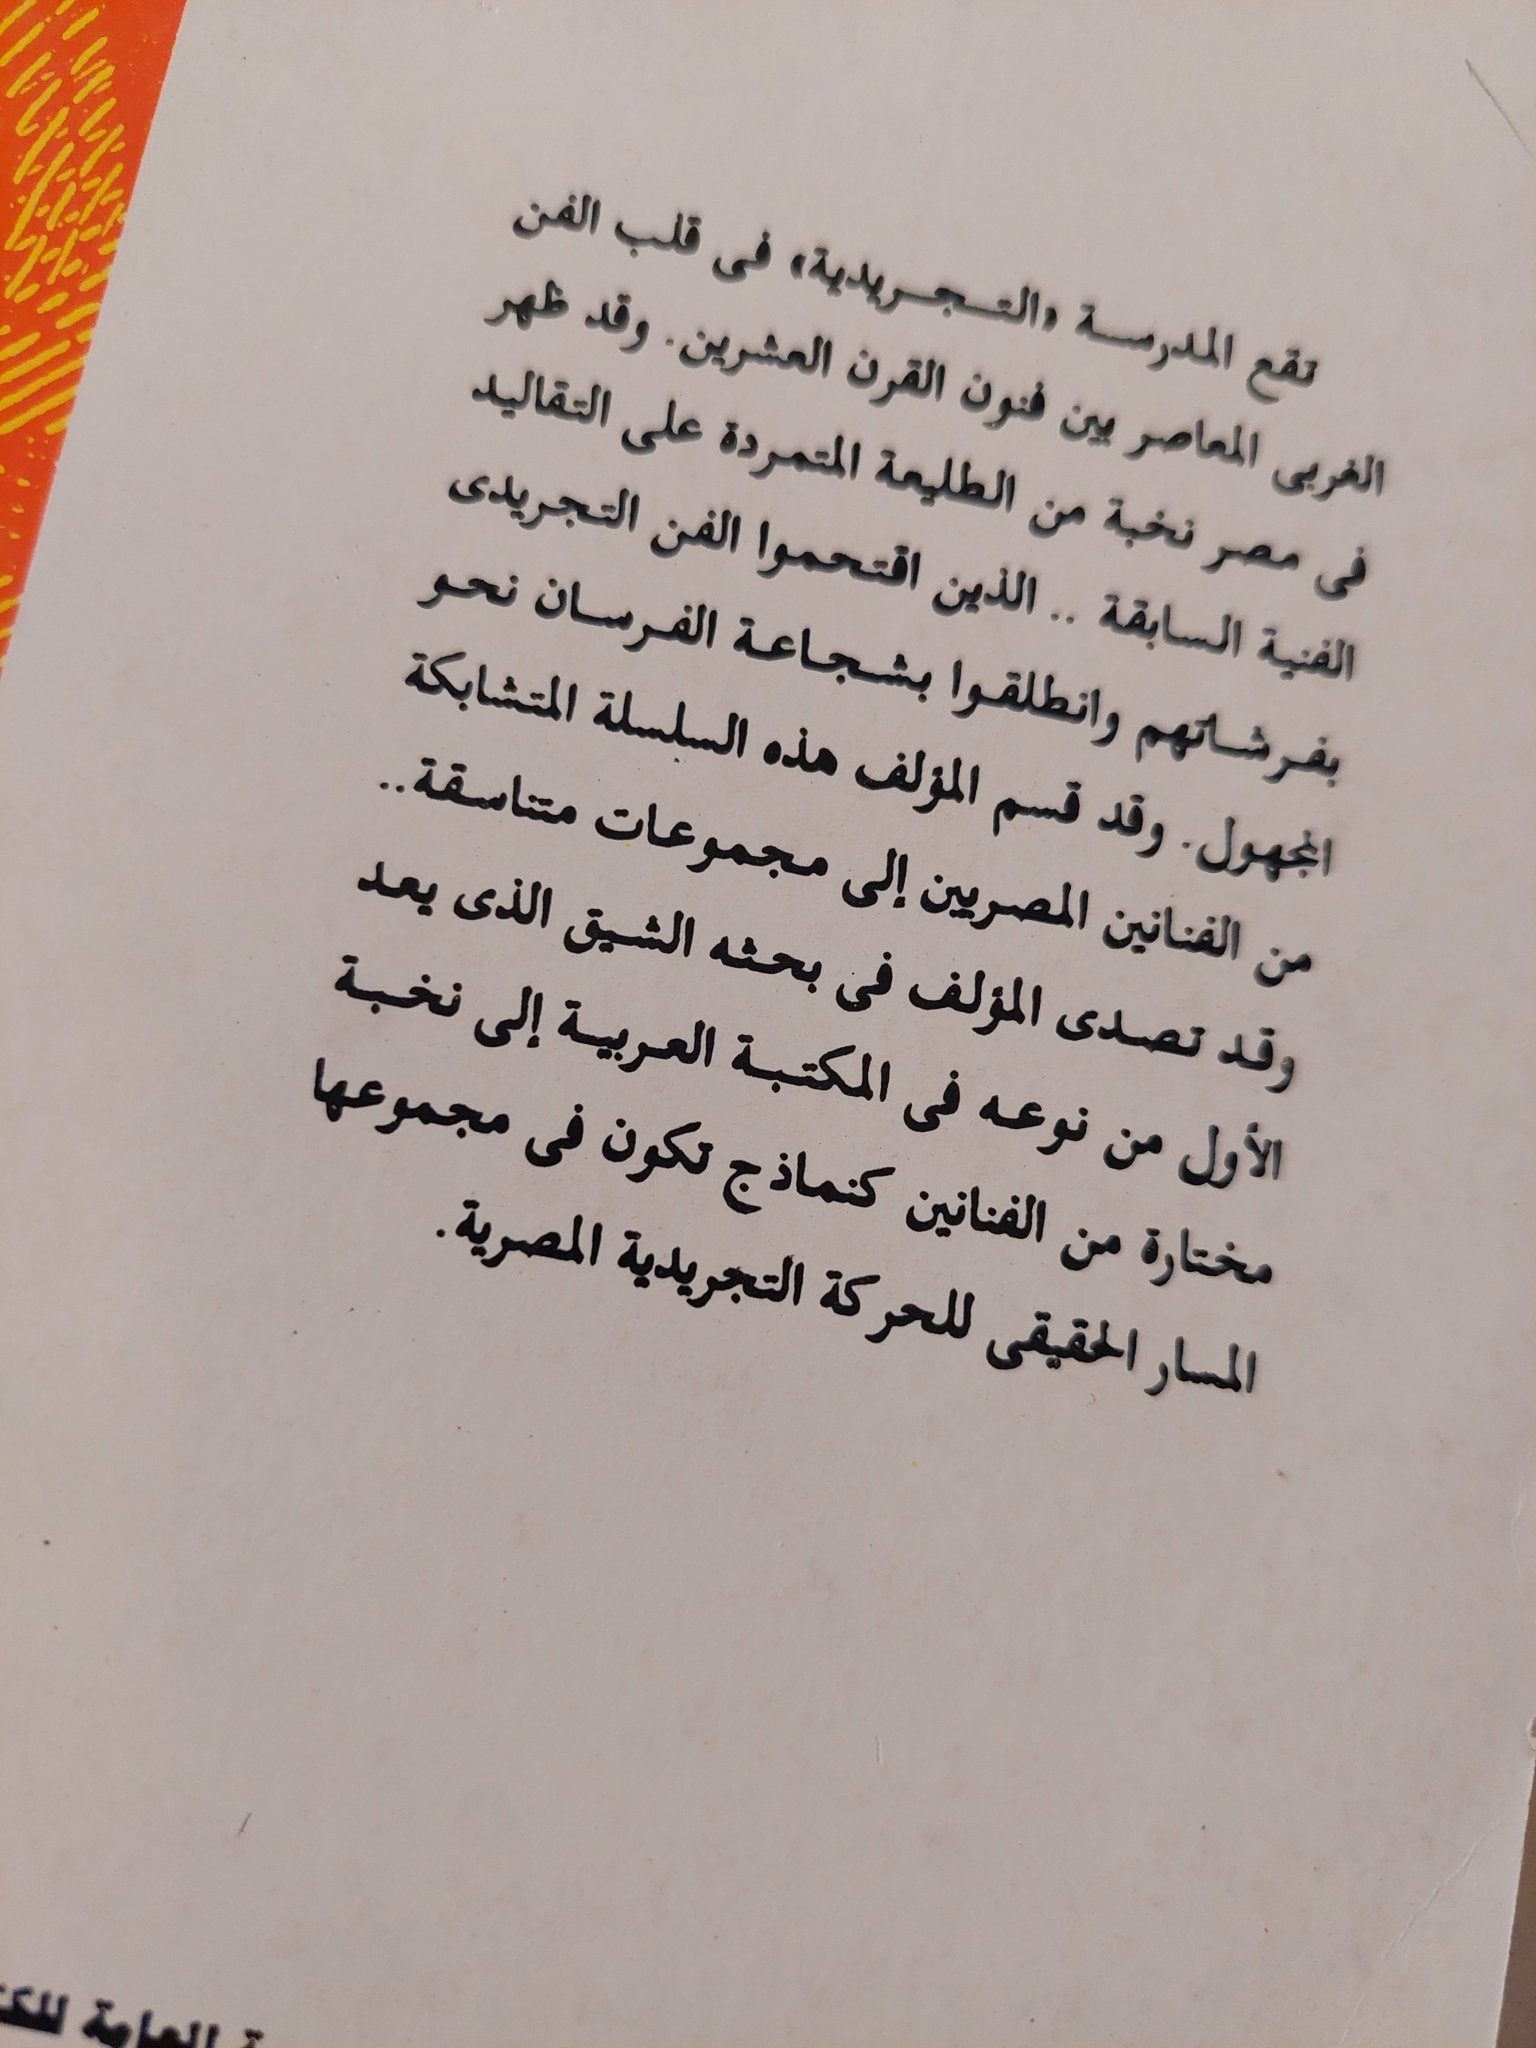 تقع المدرسة «التجريدية» فى قلب الفن
الغربى المعاصر بين فنون القرن العشرين. وقد ظهر
فى مصر نخبة من الطليعة المتمردة على التقاليد
الفنية السابقة .. الذين اقتحموا الفن التجريدى
بفرشاتهم وانطلقوا بشجاعة الفرسان نحو
المجهول. وقد قسم المؤلف هذه السلسلة المتشابكة
من الفنانين المصريين إلى مجموعات متناسقة..
وقد تصدى المؤلف فى بحثه الشيق الذى يعد
الأول من نوعه فى المكتبة العربية إلى نخبة
مختارة من الفنانين كنماذج تكون فى مجموعها
المسار الحقيقى للحركة التجريدية المصرية.
العامة